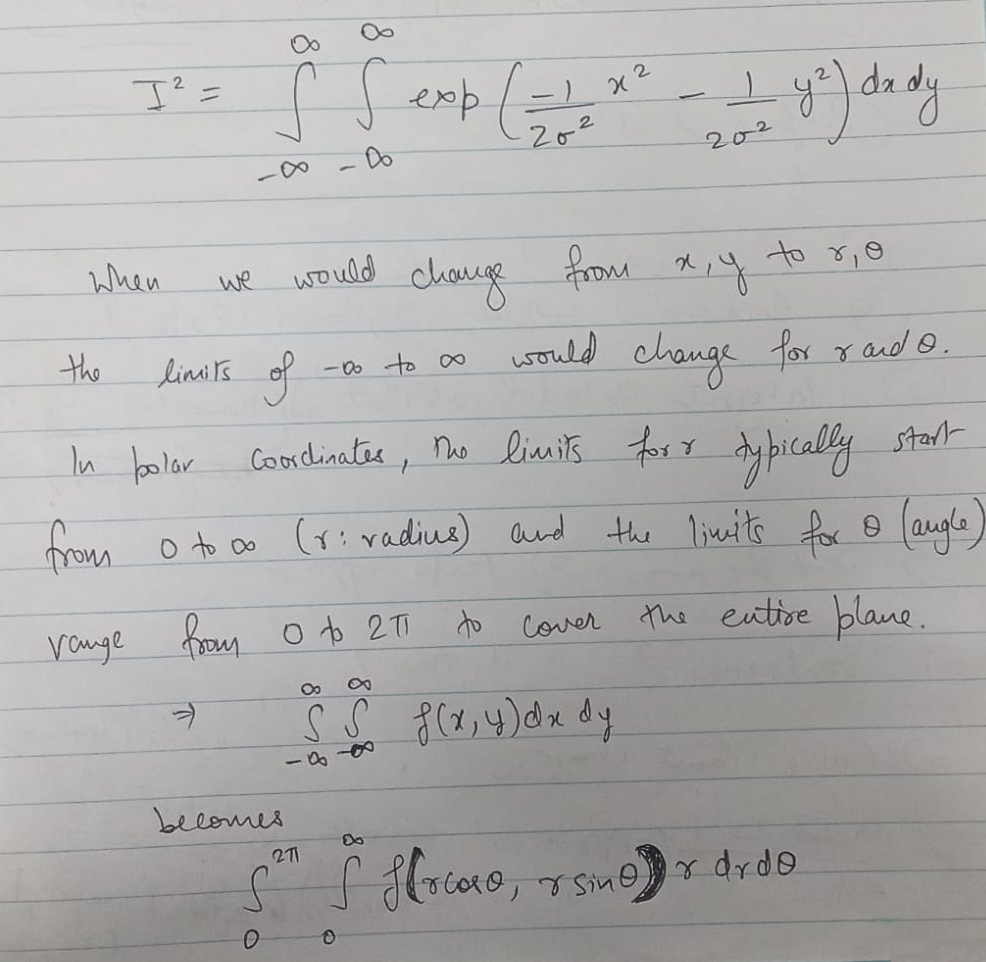 I² = ∫_{-∞}^{∞} ∫_{-∞}^{∞} exp(-1/2σ² x² - 1/2σ² y²) dx dy
When we would change from x, y to r, θ
the limits of -∞ to ∞ would change for r and θ.
In polar coordinates, the limits for r typically start
from 0 to ∞ (r: radius) and the limits for θ (angle)
range from 0 to 2π to cover the entire plane.
⇒ ∫_{-∞}^{∞} ∫_{-∞}^{∞} f(x, y) dx dy
becomes
∫_{0}^{2π} ∫_{0}^{∞} f(r cosθ, r sinθ) r dr dθ